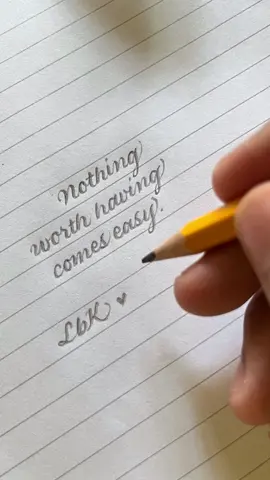 Nothing
worth having
comes easy.
LbK ♥